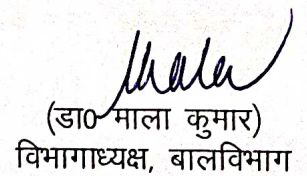 Mala
(डा० माला कुमार)
विभागाध्यक्ष, बालविभाग